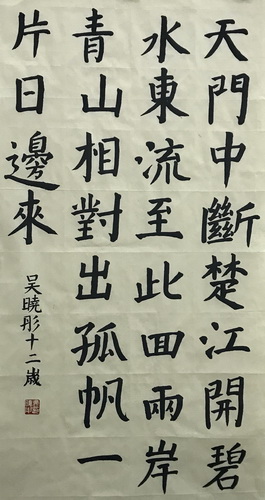 天門中斷楚江開碧
水東流至此回兩岸
青山相對出孤帆一
片日邊來
吳曉彤十二歲